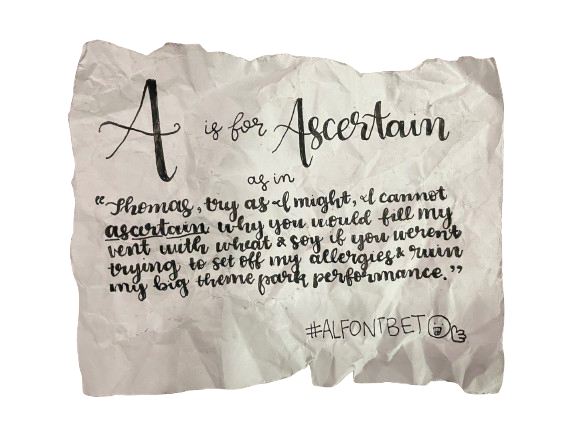 A is for Ascertain
as in
"Thomas, try as I might, I cannot
ascertain why you would fill my
vent with wheat & soy if you weren't
trying to set off my allergies & ruin
my big theme park performance."
#ALFONTBET